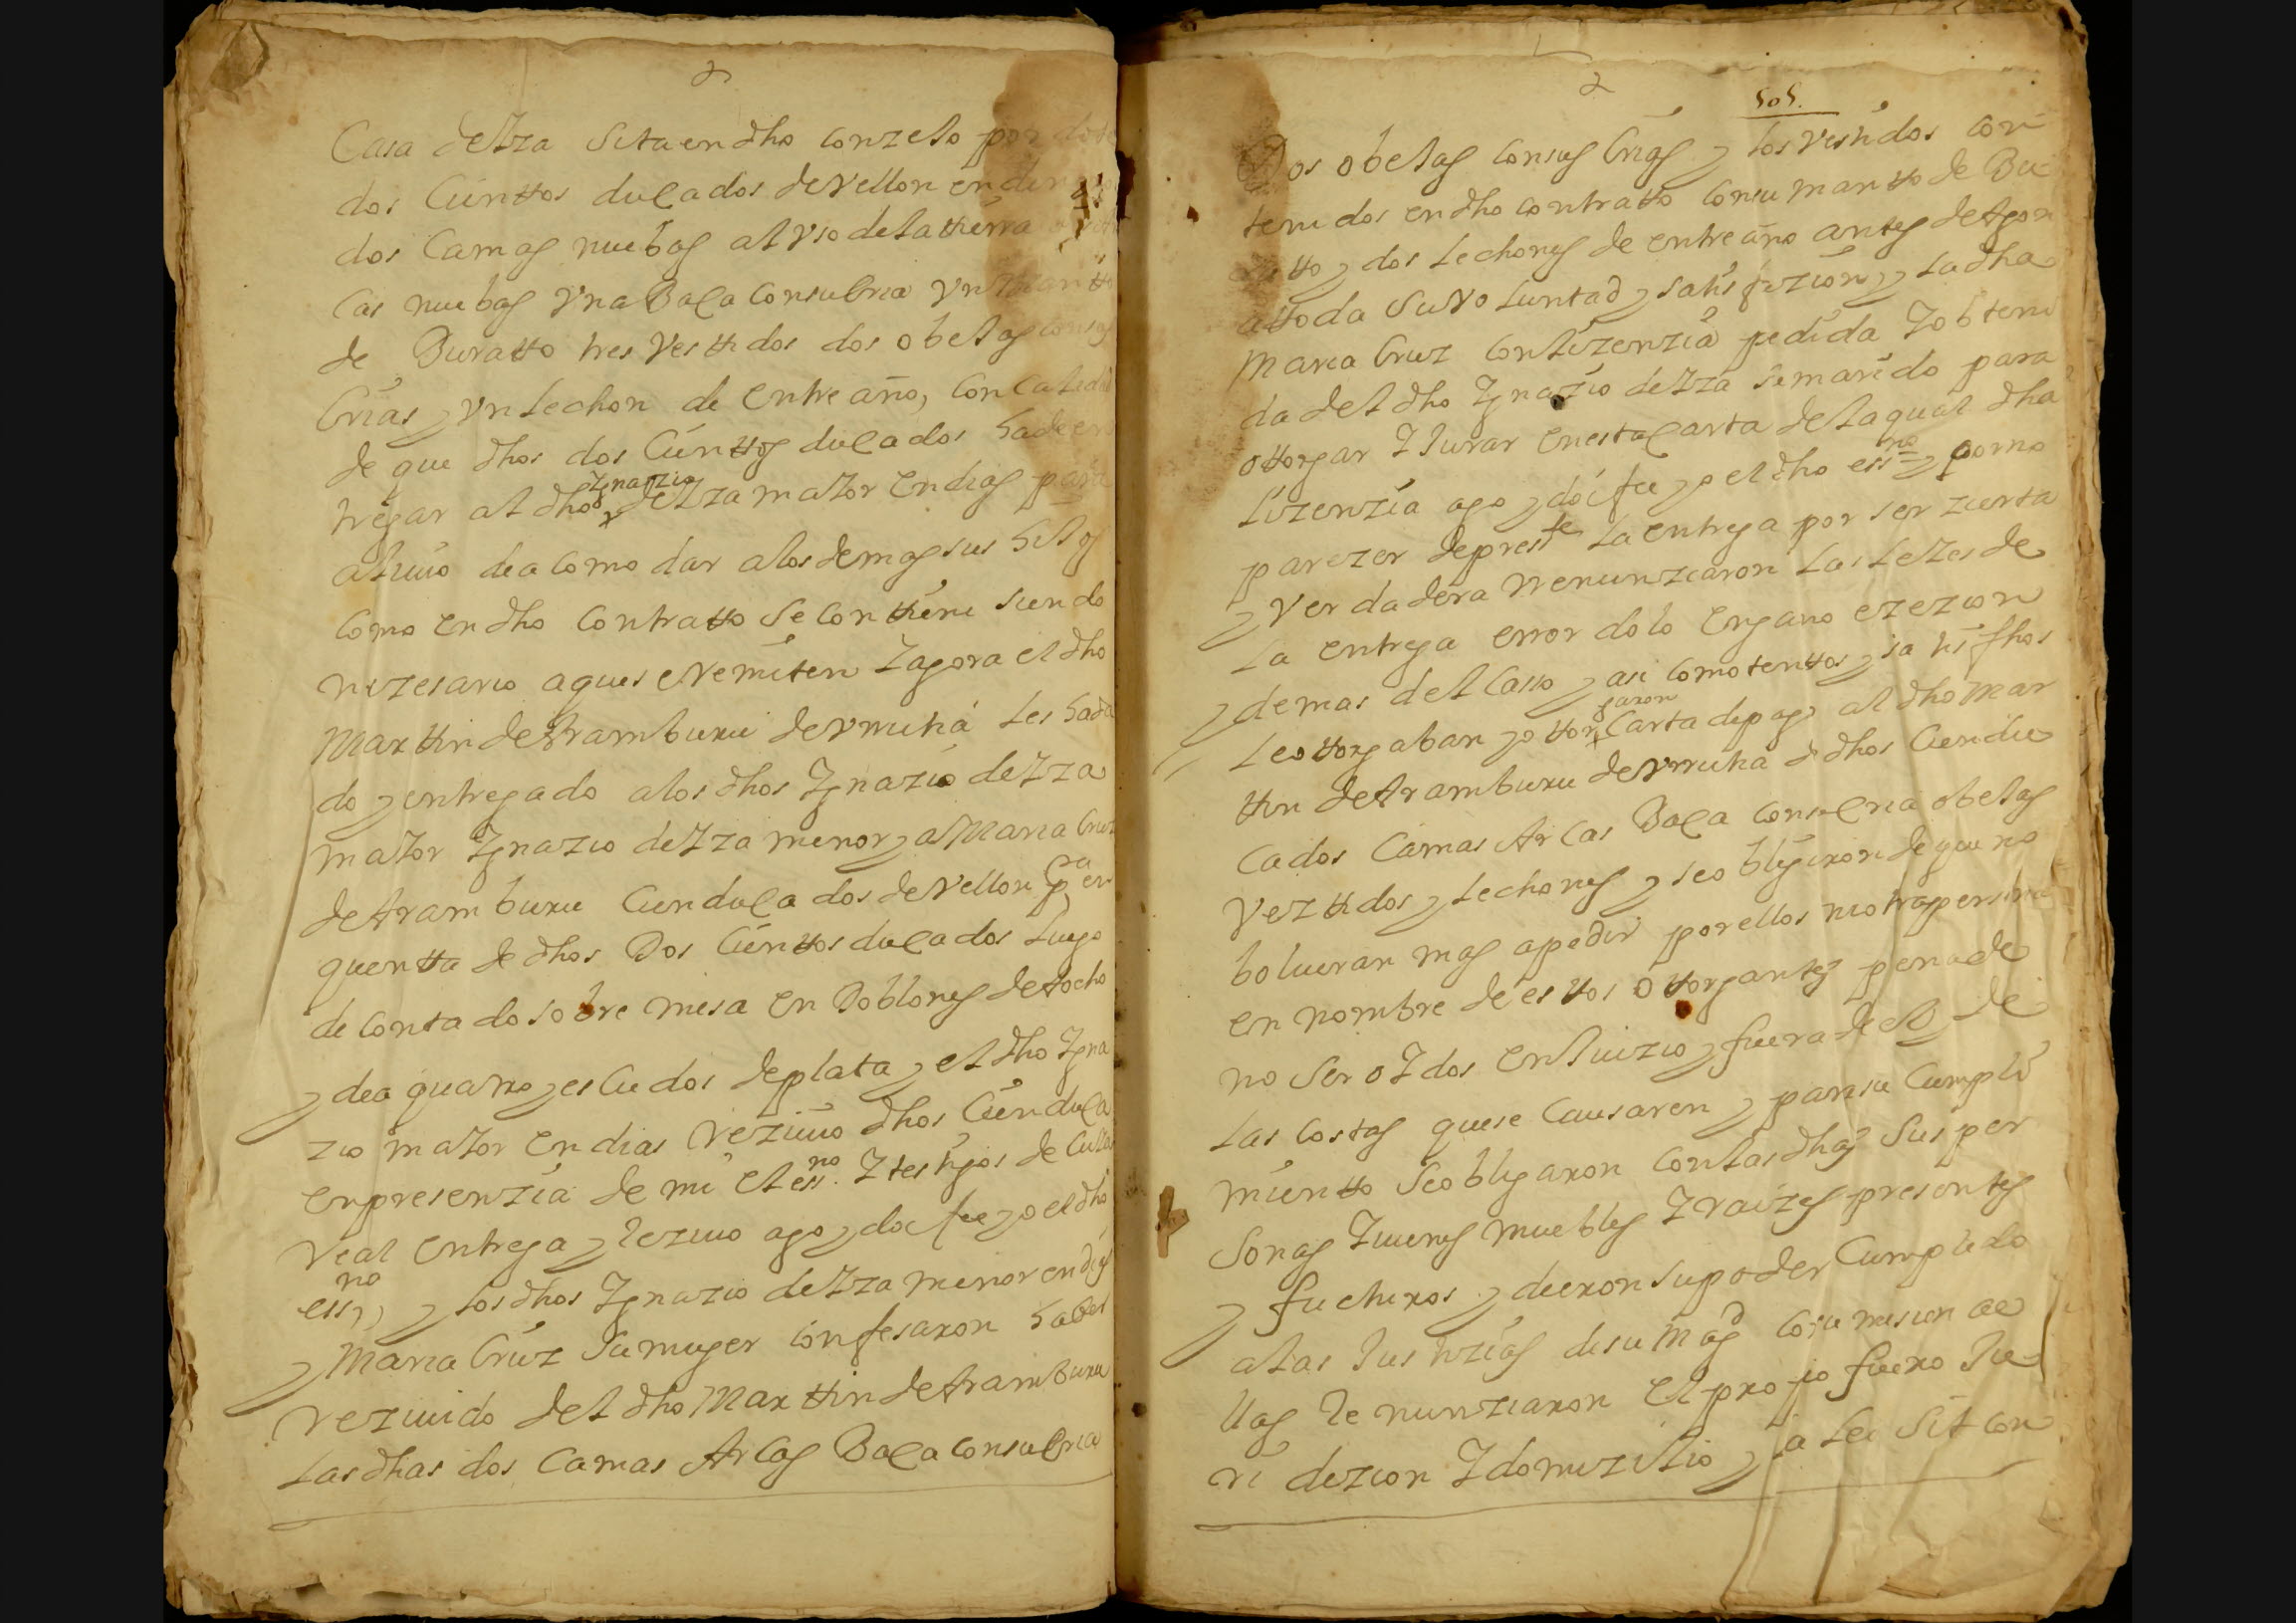 Casa de Yza sita en dho conzejo por
dos Cienttos ducados de Vellon en
dos Camas nuebas al Vso de la tierra
cas nuebas Vna Baca con su Cria Vn
de Buratto tres Vesttidos dos obejas
Crias, y Vn Lechon de entre año, con Calidad
de que dhos dos Cienttos ducados ha de en
tregar al dho Ygnazio de Yza mayor en dias para
alivio de acomodar a los demas sus hijos
como en dho Contratto se conttiene siendo
nezesario a que se Remiten Y agora el dho
Marttin de Aramburu de Vrrutia les ha da
do y entregado a los dhos Ygnazio de Yza
mayor Ygnazio de Yza menor y a Maria Cruz
de Aramburu Cien ducados de Vellon pa en
quentta de dhos Dos Cienttos ducados Luego
de contado sobre mesa en Doblones de a ocho
y de a quatro y escudos de plata, y el dho Ygna
zio mayor en dias Rezivio dhos Cien duca
en presenzia de mi el essno. Y testigos de Cuia
Real entrega y Rezivo ago y doi fee yo el dho
essno, y los dhos Ygnazio de Yza menor en dias
y Maria Cruz su muger confesaron haber
Rezivido del dho Marttin de Aramburu
Las dhas dos Camas Arcas Baca con su Cria
2
505.
Dos obejas con sus Crias y los Vestidos con
tenidos en dho contratto con su mantto de Bu
ratto y dos Lechones de entre año antes de Agora
a ttoda su Voluntad y satisfazion, y La dha
Maria Cruz con lizenzia pedida Y obteni
da del dho Ygnazio de Yza su marido para
ottorgar Y Jurar en esta Carta de la qual dha
Lizenzia ago y doi fee yo el dho essno y por no
parezer de presste La entrega por ser zierta
y Verdadera Renunziaron Las Leyes de
La entrega error dolo engano ezezion
y demas del Casso, y asi como tenttos y satisfhos
Le ottorgaban y ottorgaron Carta de pago al dho Mar
ttin de Aramburu de Vrrutia de dhos Cien du
cados Camas Arcas Baca con su Cria obejas
Vezttidos y Lechones, y se obligaron de que no
bolveran mas a pedir por ellos ni otra persona
en nombre de esttos ottorgantes pena de
no ser oydos en Juizio y fuera de el y de
Las Costas que se Causaren, y para su Cumpli
mientto se obligaron con las dhas sus per
sonas Y vienes muebles Y Raizes presentes
y futturos, y dieron su poder Cumplido
a las Justizias de su Magd a cuia
Renunziaron El propio fuero Ju
ridizion Y domizilio y la Lei Sit con